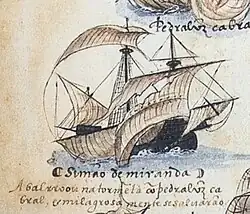 Pedralvz cabra
Simão de miranda
Abalrroou na tormẽta cõ pedralvz ca
bral, e milagrosa mente se salvarão